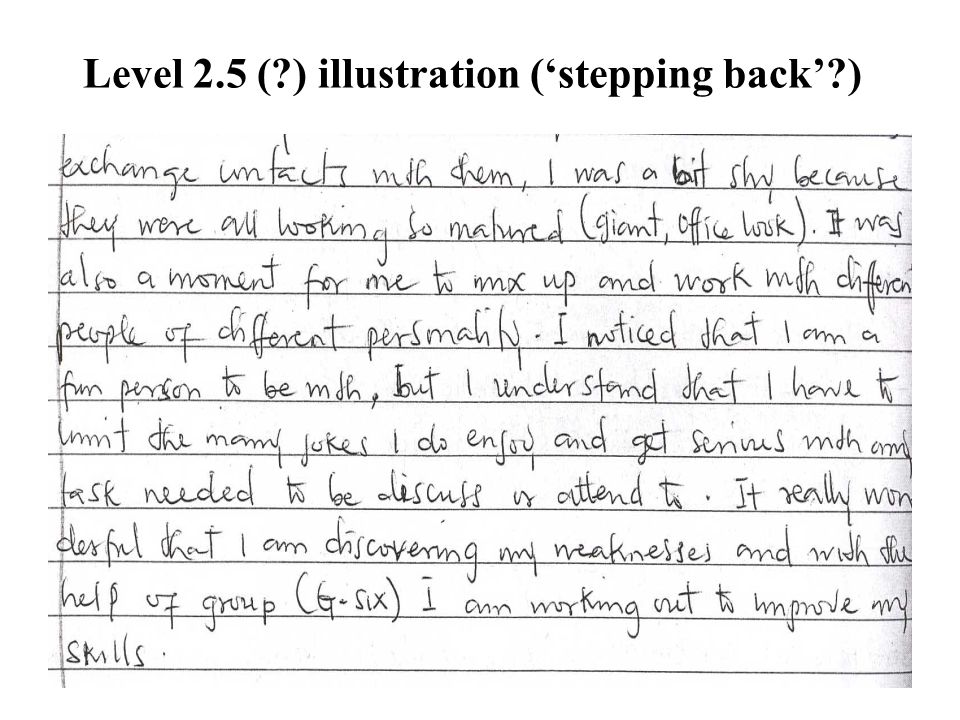 Level 2.5 (?) illustration (‘stepping back’?)
exchange contacts with them, I was a bit shy because
they were all looking so matured (giant, office look). It was
also a moment for me to mix up and work with different
people of different personality. I noticed that I am a
fun person to be with, but I understand that I have to
limit the many jokes I do enjoy and get serious with any
task needed to be discuss or attend to. It really won
derful that I am discovering my weaknesses and with the
help of group (G-six) I am working out to improve my
skills.